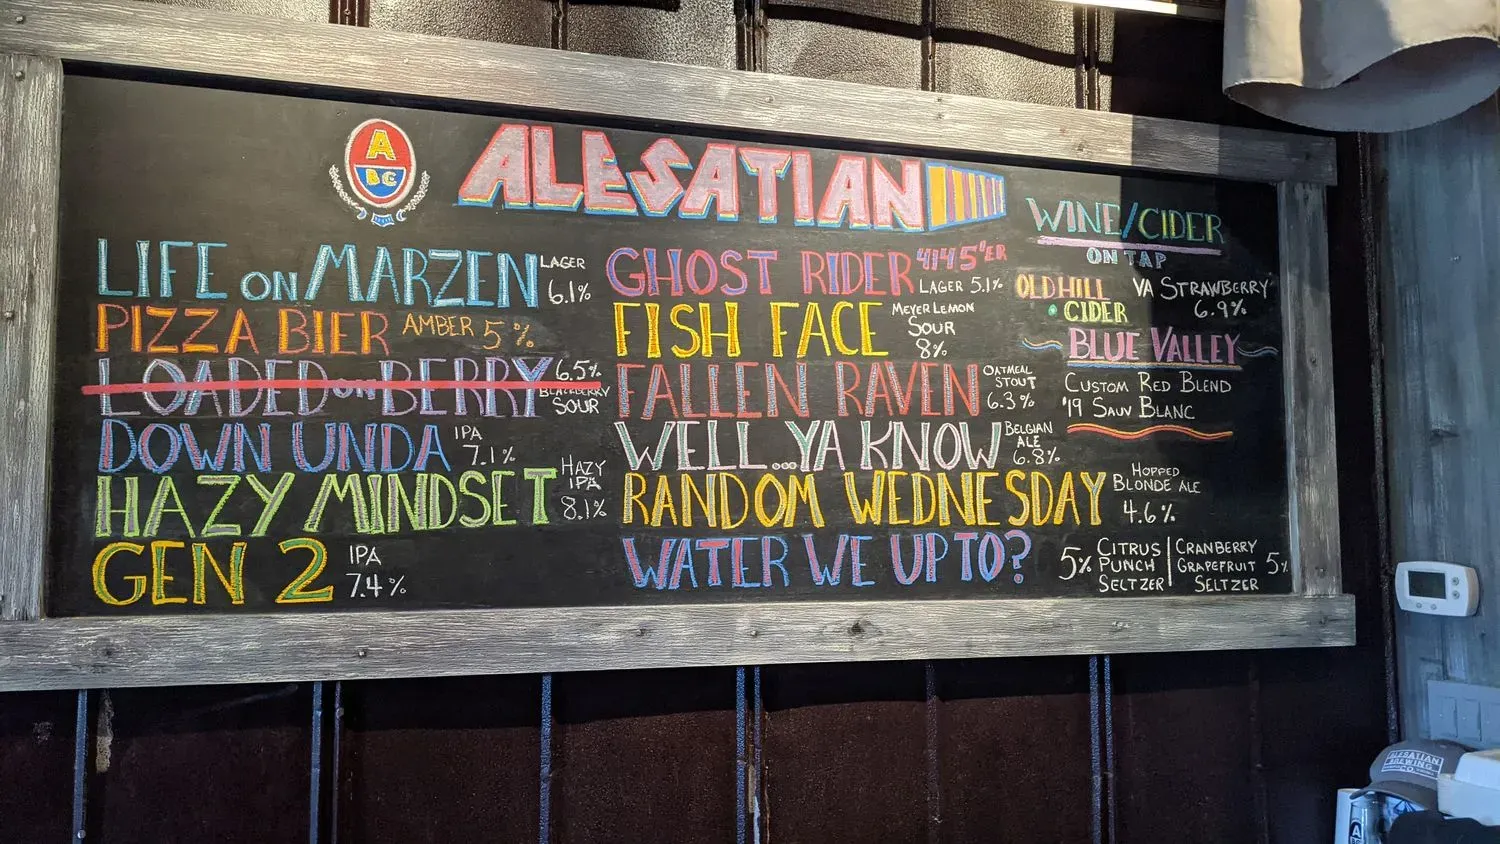 A
BC
ALESATIAN
LIFE ON MARZEN LAGER 6.1%
PIZZA BIER AMBER 5%
LOADED ON BERRY 6.5% BLACKBERRY SOUR
DOWN UNDA IPA 7.1%
HAZY MINDSET HAZY IPA 8.1%
GEN 2 IPA 7.4%
GHOST RIDER 4145'ER LAGER 5.1%
FISH FACE MEYER LEMON SOUR 8%
FALLEN RAVEN OATMEAL STOUT 6.3%
WELL...YA KNOW BELGIAN ALE 6.8%
RANDOM WEDNESDAY HOPPED BLONDE ALE 4.6%
WATER WE UP TO? 5% CITRUS PUNCH SELTZER | CRANBERRY GRAPEFRUIT SELTZER 5%
WINE/CIDER
ON TAP
OLD HILL CIDER VA STRAWBERRY 6.9%
BLUE VALLEY
CUSTOM RED BLEND
'19 SAUV BLANC
ALESATIAN
BREWING
CO.